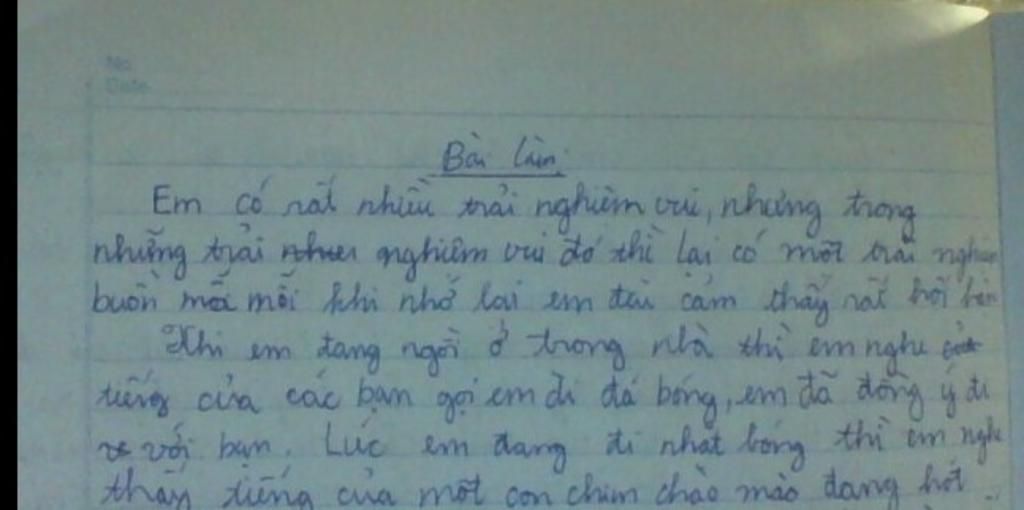 No.
Date.
Bài làm.
Em có rất nhiều trải nghiệm vui, nhưng trong
những trải nghiệm vui đó thì lại có một trải nghiệm
buồn mà mỗi khi nhớ lại em đều cảm thấy rất hối hận
Khi em đang ngồi ở trong nhà thì em nghe
tiếng của các bạn gọi em đi đá bóng, em đã đồng ý đi
với bạn. Lúc em đang đi nhặt bóng thì em nghe
thấy tiếng của một con chim chào mào đang hót